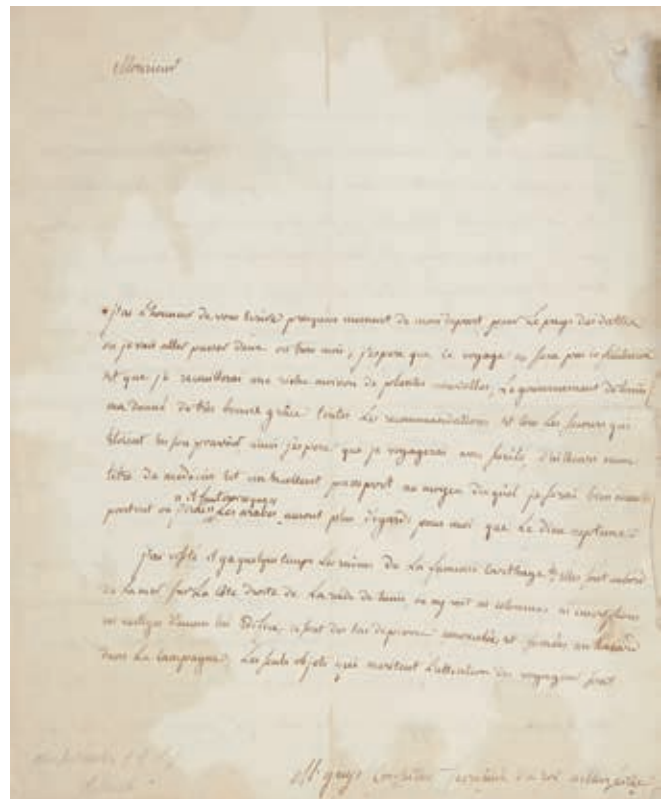 Monsieur
j'ai L'honneur de vous écrire presqu'au moment de mon depart pour Le pays des dattes
ou je vais aller passer deux ou trois mois, j'espere que ce voyage ne sera pas infructueux
et que je recueillerai une riche moisson de plantes nouvelles, Le gouvernement de tunis
m'a donné de très bonne grâce toutes Les recommandations et tous Les secours qui
étoient en son pouvoir ainsi j'espere que je voyagerai avec sureté, d'ailleurs mon
titre de médecin est un excellent passeport au moyen duquel je serai bien
partout ou j'irai Les arabes auront plus d'egards pour moi que Le dieu neptune.
j'ai visité il y a quelque temps Les ruines de La fameuse Carthage elles sont au bord
de La mer sur La côte droite de La rade de tunis on n'y voit ni colonnes ni inscriptions
ni vestiges d'aucun bel Edifice, ce sont des tas de pierres amoncelées et semées au hazard
dans La campagne; Les seuls objets qui meritent L'attention du voyageur sont